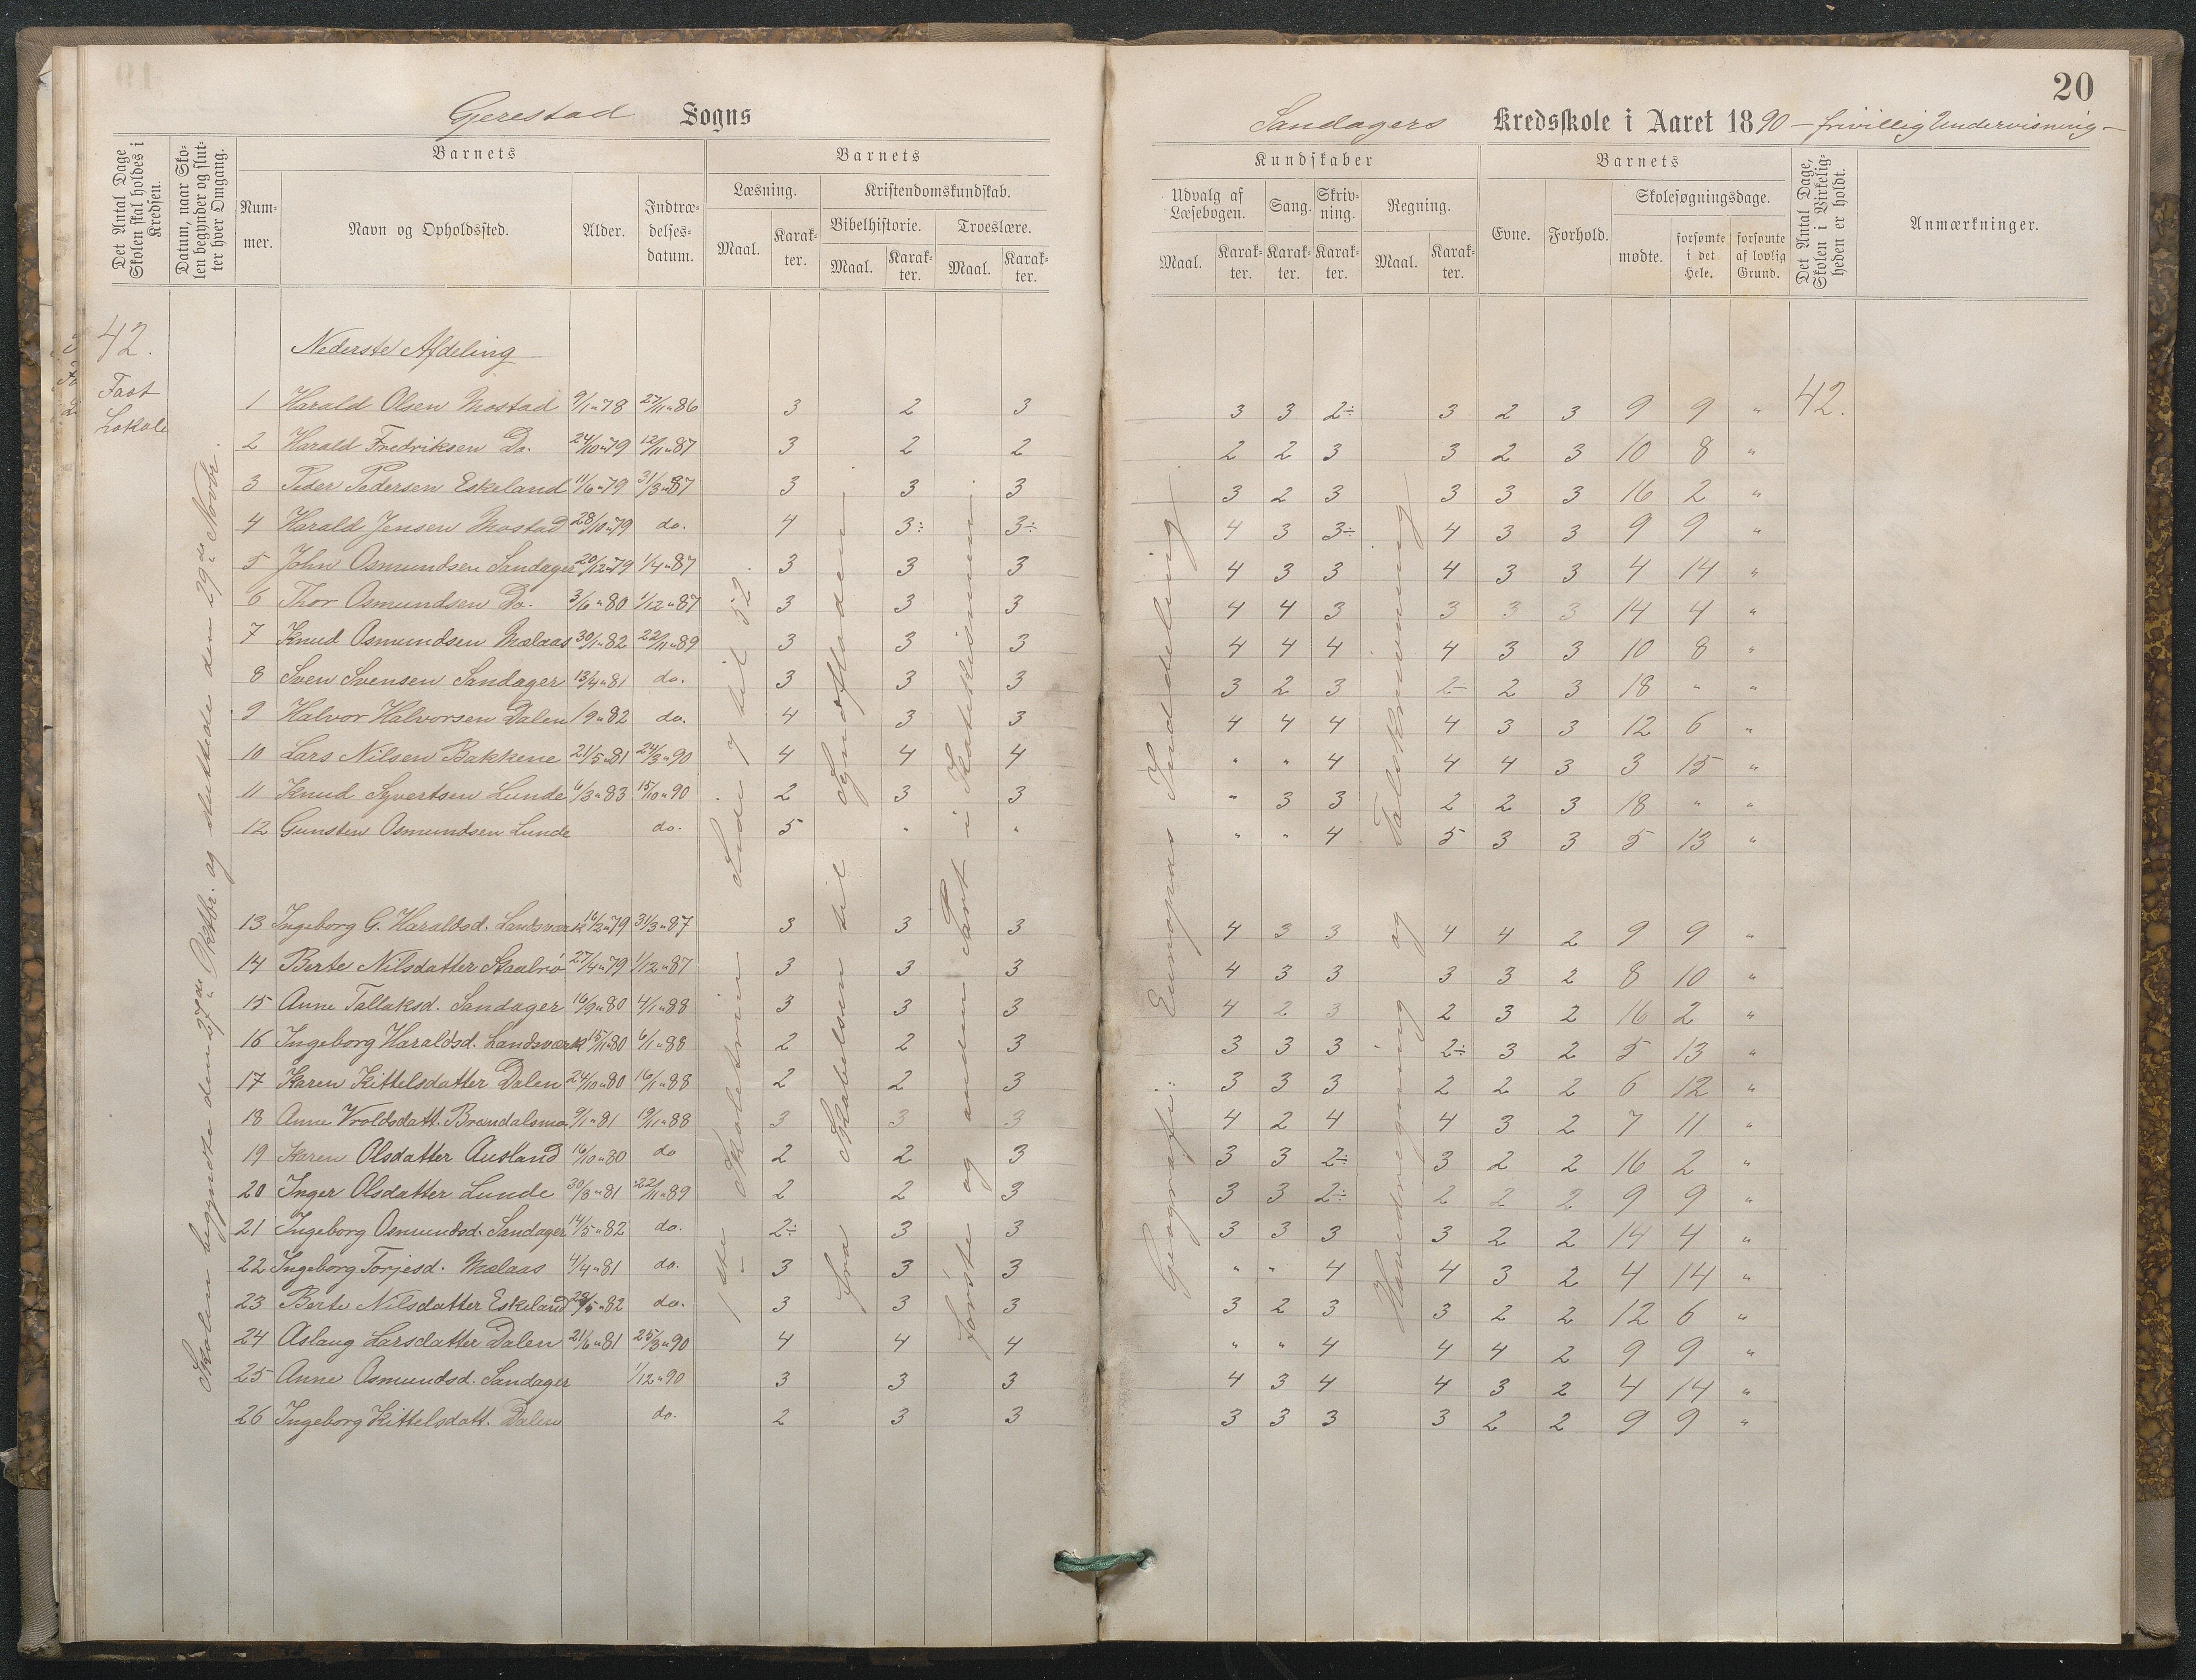 20
Gjerestad Sogns
Sandagers Kredsskole i Aaret 1890 – frivillig Undervisning –
Det Antal Dage Skolen skal holdes i Kredsen.
Datum, naar Skolen begynder og slutter hver Omgang.
Barnets
Nummer.
Navn og Opholdssted.
Alder.
Indtrædelsesdatum.
Barnets
Læsning.
Maal.
Karakter.
Kristendomskundskab.
Bibelhistorie.
Maal.
Karakter.
Troeslære.
Maal.
Karakter.
Kundskaber
Udvalg af Læsebogen.
Maal.
Karakter.
Sang.
Karakter.
Skrivning.
Karakter.
Regning.
Maal.
Karakter.
Barnets
Evne.
Forhold.
Skolesøgningsdage.
mødte.
forsømte i det Hele.
forsømte af lovlig Grund.
Det Antal Dage, Skolen i Virkeligheden er holdt.
Anmærkninger.
42.
Fast
Lokale
Skolen begyndte den 27de Oktbr. og sluttede den 29de Novbr.
Nederste Afdeling
1ste Skoletrin Side 7 til 52.
fra Skabelsen til Syndfloden.
første og anden Part i Katekismen.
Geografi: Europas Inddeling
Hovedregning og Taleskrivning
42.
1 Harald Olsen Mostad 9/1 "78 27/11 "86 3 2 3 3 3 2÷ 3 2 3 9 9 "
2 Harald Fredriksen Do. 24/10 "79 12/11 "87 3 2 2 2 2 3 3 2 3 10 8 "
3 Peder Pedersen Eskeland 11/6 "79 31/3 "87 3 3 3 3 2 3 3 3 3 16 2 "
4 Harald Jensen Mostad 28/10 "79 do. 4 3÷ 3÷ 4 3 3÷ 4 3 3 9 9 "
5 John Osmundsen Sandager 20/12 "79 1/4 "87 3 3 3 4 3 3 4 3 3 4 14 "
6 Thor Osmundsen Do. 3/6 "80 1/12 "87 3 3 3 4 4 3 3 3 3 14 4 "
7 Knud Osmundsen Mælaas 30/1 "82 22/11 "89 3 3 3 4 4 4 4 3 3 10 8 "
8 Sven Svensen Sandager 13/4 "81 do. 3 3 3 3 2 3 2- 2 3 18 " "
9 Halvor Halvorsen Dalen 1/9 "82 do. 4 3 3 4 4 4 4 3 3 12 6 "
10 Lars Nilsen Bakkene 21/5 "81 24/3 "90 4 4 4 " " 4 4 4 3 3 15 "
11 Knud Syvertsen Lunde 6/3 "83 15/10 "90 2 3 3 " 3 3 2 2 3 18 " "
12 Gunsten Osmundsen Lunde do. 5 " " " " 4 5 3 3 5 13 "
13 Ingeborg G. Haraldsd. Landsværk 16/12 "79 31/3 "87 3 3 3 4 3 3 4 4 2 9 9 "
14 Berte Nilsdatter Staalrø 27/4 "79 1/12 "87 3 3 3 4 3 3 3 3 2 8 10 "
15 Anne Tallaksd. Sandager 16/9 "80 4/1 "88 3 3 3 4 2 3 2 3 2 16 2 "
16 Ingeborg Haraldsd. Landsværk 15/11 "80 6/1 "88 2 2 3 3 3 3 2÷ 3 2 5 13 "
17 Karen Kittelsdatter Dalen 24/10 "80 16/1 "88 2 2 3 3 3 3 2 2 2 6 12 "
18 Anne Vroldsdatt. Brændalsmo 9/1 "81 19/11 "88 3 3 3 4 2 4 4 3 2 7 11 "
19 Karen Olsdatter Ausland 16/10 "80 do 2 2 3 3 3 2÷ 3 2 2 16 2 "
20 Inger Olsdatter Lunde 30/3 "81 22/11 "89 2 2 3 3 3 2÷ 2 2 2 9 9 "
21 Ingeborg Osmundsd. Sandager 14/5 "82 do. 2÷ 3 3 3 3 3 3 2 2 14 4 "
22 Ingeborg Torjesd. Mælaas 4/4 "81 do. 3 3 3 " " 4 4 3 2 4 14 "
23 Berte Nilsdatter Eskeland 28/5 "82 do. 3 3 3 3 2 3 3 2 2 12 6 "
24 Aslaug Larsdatter Dalen 21/6 "81 25/3 "90 4 4 4 " " 4 4 4 2 9 9 "
25 Anne Osmundsd. Sandager 1/12 "90 3 3 3 4 3 4 4 3 2 4 14 "
26 Ingeborg Kittelsdatt. Dalen do. 2 3 3 3 3 3 3 2 2 9 9 "